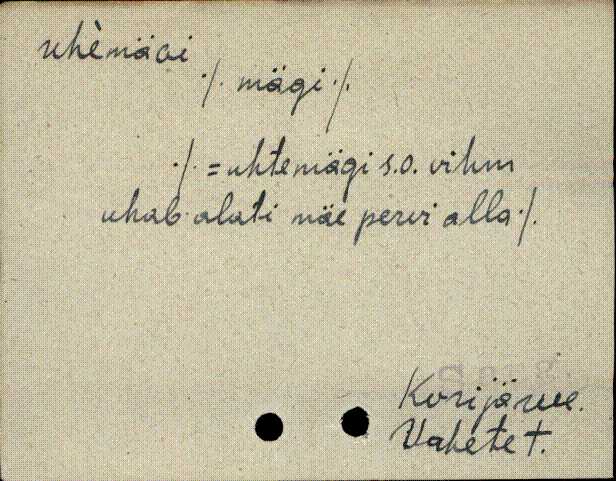 uhèmäai
·/. mägi ·/.
·/. = uhtemägi s.o. vihm
uhab alati mäe pervi alla ·/.
Korijärve.
Vahetet.